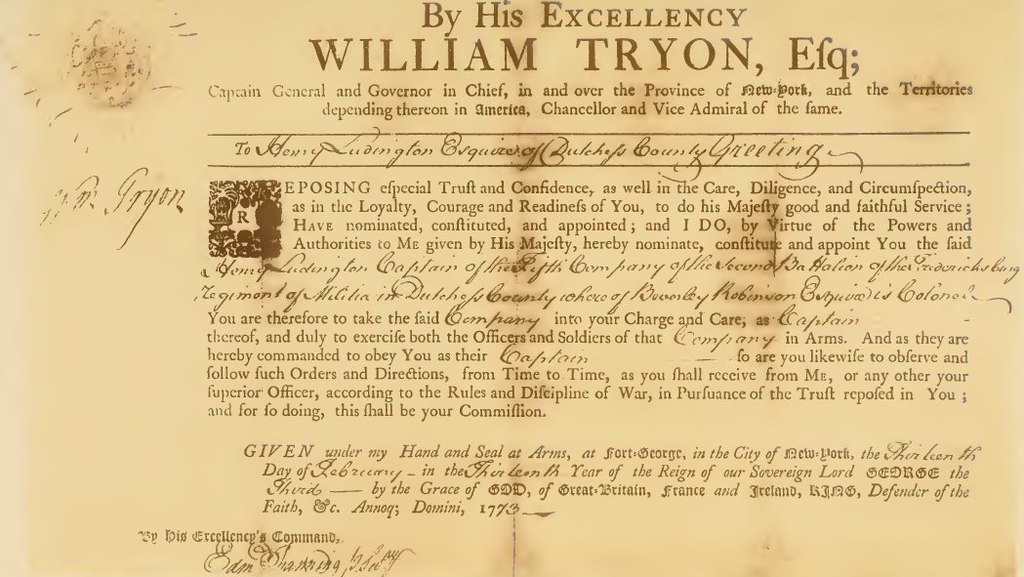 By His EXCELLENCY
WILLIAM TRYON, Eſq;
Captain General and Governor in Chief, in and over the Province of New-York, and the Territories
depending thereon in America, Chancellor and Vice Admiral of the ſame.
To Henry Ludington Esquire of Dutchess County Greeting
Wm. Tryon
REPOSING eſpecial Truſt and Confidence, as well in the Care, Diligence, and Circumſpection,
as in the Loyalty, Courage and Readineſs of You, to do his Majeſty good and faithful Service;
HAVE nominated, conſtituted, and appointed; and I DO, by Virtue of the Powers and
Authorities to ME given by His Majeſty, hereby nominate, conſtitute and appoint You the ſaid
Henry Ludington Captain of the Fifth Company of the Second Battalion of the Fredericksburg
Regiment of Militia in Dutchess County where of Beverley Robinson Esquire is Colonel
You are therefore to take the ſaid Company into your Charge and Care, as Captain
thereof, and duly to exerciſe both the Officers and Soldiers of that Company in Arms. And as they are
hereby commanded to obey You as their Captain ſo are you likewiſe to obſerve and
follow ſuch Orders and Directions, from Time to Time, as you ſhall receive from ME, or any other your
ſuperior Officer, according to the Rules and Diſcipline of War, in Purſuance of the Truſt repoſed in You;
and for ſo doing, this ſhall be your Commiſſion.
GIVEN under my Hand and Seal at Arms, at Fort-George, in the City of New-York, the Thirteenth
Day of February in the Thirteenth Year of the Reign of our Sovereign Lord GEORGE the
Third by the Grace of GOD, of Great-Britain, France and Ireland, KING, Defender of the
Faith, &c. Annoq; Domini, 1773
By His Excellency's Command,
Edm Fanning